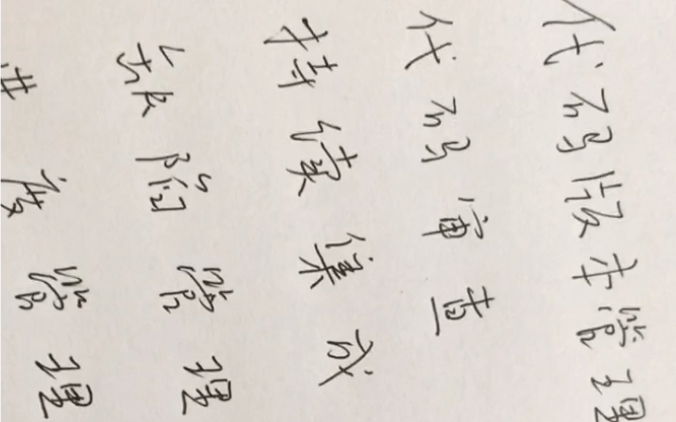 代码版本管理
代码审查
持续集成
缺陷管理
进度管理